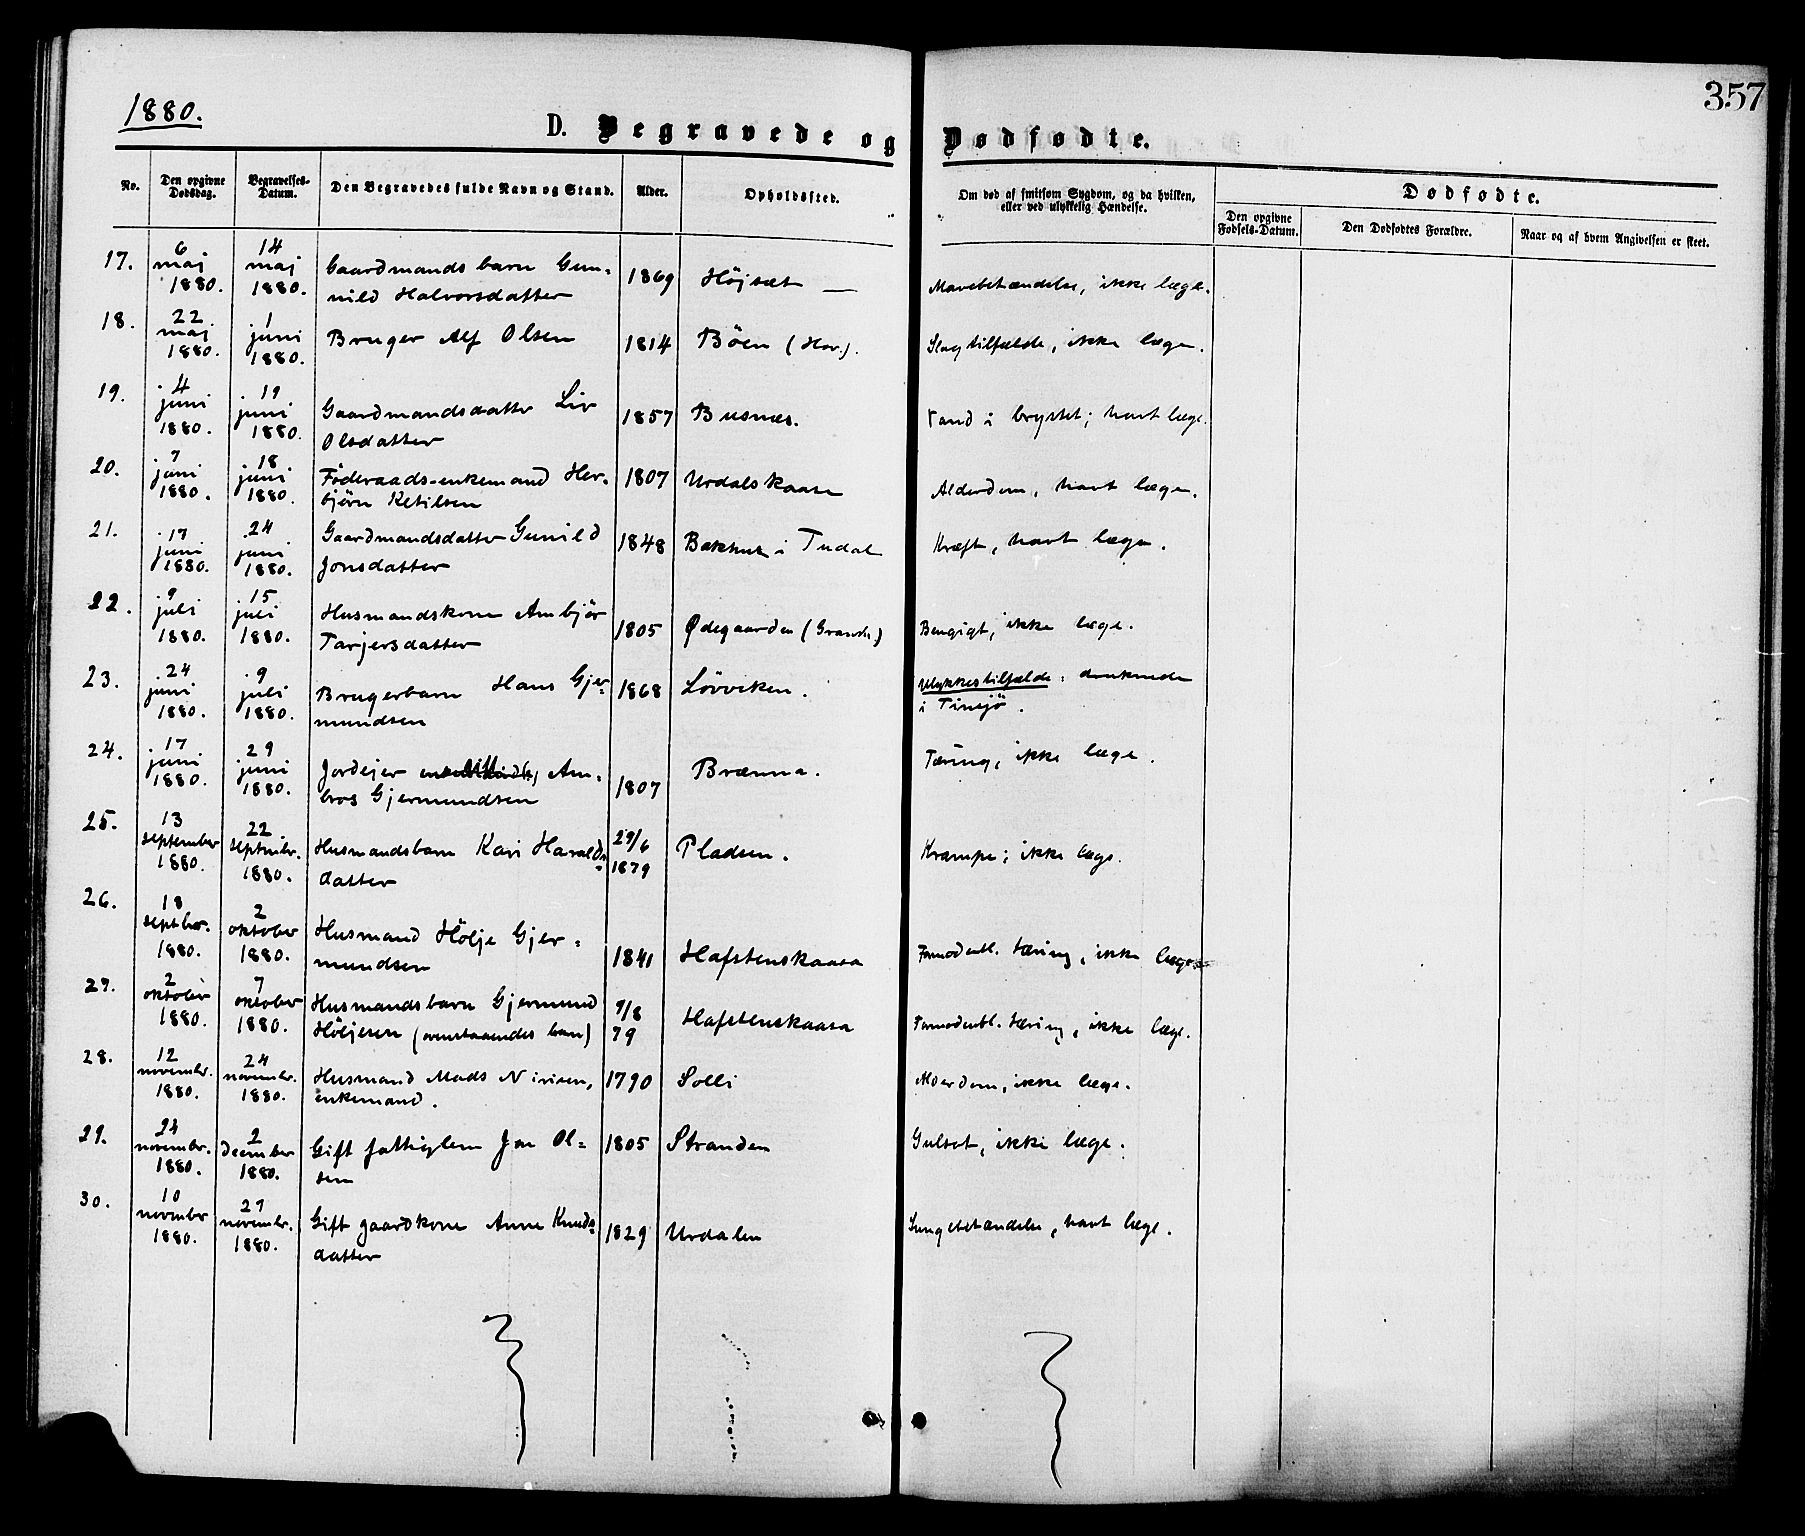 1880.
357
D. Begravede og Dødfødte.
No. Den opgivne Dødsdag. Begravelses-Datum. Den Begravedes fulde Navn og Stand. Alder. Opholdssted. Om død af smitsom Sygdom, og da hvilken, eller ved ulykkelig Hændelse. Dødfødte.
Den opgivne Fødsels-Datum. Den Dødfødtes Forældre. Naar og af hvem Angivelsen er skeet.
17. 6 maj 1880. 14 maj 1880. Gaardmandsbarn Gun-
nild Halvorsdatter 1869 Højsæt — Mavebetændelse, ikke læge.
18. 22 maj 1880. 1 juni 1880. Bruger Alf Olsen 1814 Bøen (Hov.). Slagtilfælde, ikke læge.
19. 4 juni 1880. 19 juni 1880. Gaardmandsdatter Liv
Olsdatter 1857 Busnæs. Vand i brystet; havt læge.
20. 7 juni 1880. 18 juni 1880. Føderaads-enkemand Her-
bjørn Ketilsen 1807 Urdalskaasa Alderdom, havt læge.
21. 17 juni 1880. 24 juni 1880. Gaardmandsdatter Gunild
Jonsdatter 1848 Bakhus i Tudal Kræft, havt læge.
22. 9 juli 1880. 15 juli 1880. Husmandskone Ambjør
Tarjersdatter 1805 Ødegaarden Bengigt, ikke læge.
23. 24 juni 1880. 9 juli 1880. Brugerbarn Hans Gjer-
mundsen 1868 Løvviken. Ulykkestilfælde: druknede
i Tinsjø.
24. 17 juni 1880. 29 juni 1880. Jordejer Am-
bros Gjermundsen 1807 Brænna. Tæring, ikke læge.
25. 13 september 1880. 22 septmbr. 1880. Husmandsbarn Kari Haralds-
datter 29/6 1879 Pladsen. Krampe; ikke læge.
26. 18 septbr. 1880. 2 oktober 1880. Husmand Hølje Gjer-
mundsen 1841 Hafstenskaasa Formodentl. tæring, ikke læge.
27. 2 oktober 1880. 7 oktober 1880. Husmandsbarn Gjermund
Høljesen (ovenstaaendes barn) 9/8 79 Hafstenskaasa Formodentl. tæring, ikke læge.
28. 12 novembr. 1880. 24 novembr. 1880. Husmand Mads Nirisen,
enkemand. 1790 Solli Alderdom, ikke læge.
29. 24 novembr. 1880. 2 december 1880. Gift fattiglem Jon Ol-
sen 1805 Stranden Gulsot, ikke læge.
30. 10 novembr 1880. 27 novembr. 1880. Gift gaardkone Anne Knuds-
datter 1829 Urdalen Lungebetændelse, havt læge.